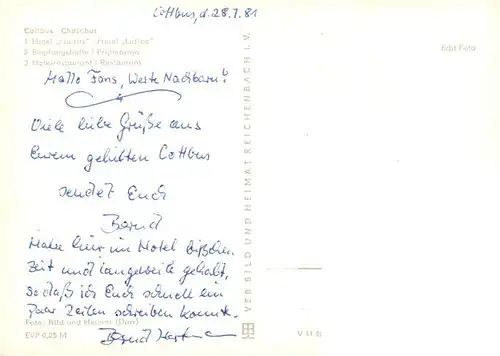 Cottbus, d. 28.7.81
Cottbus - Chośebuz
1 Hotel „Lausitz" - Hotel „Łužica"
2 Empfangshalle /
3 Hotelrestaurant / Restaurant
Edit Foto
Hallo Fans, Werte Nachbarn!
Viele liebe Grüße aus
Eurem geliebten Cottbus
sendet Euch
Bernd
Habe hier im Hotel bißchen
Zeit und langeweile gehabt,
so daß ich Euch schnell ein
paar Zeilen schreiben konnte.
Foto: Bild und Heimat (Darr)
EVP 0,25 M
Bernd
VEB BILD UND HEIMAT REICHENBACH I. V.
V 11 51